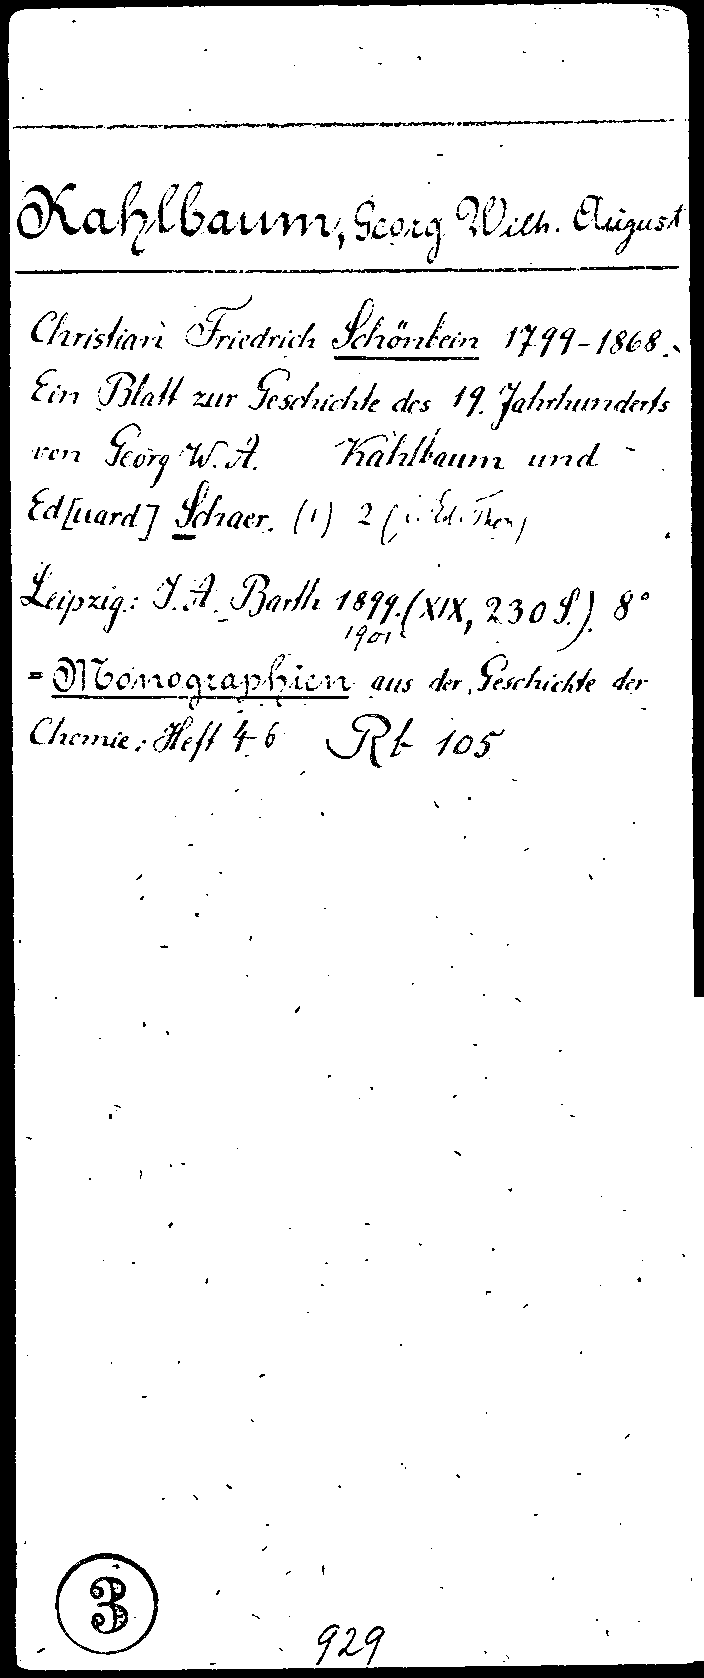 Kahlbaum, Georg Wilh. August
Christian Friedrich Schönbein 1799-1868.
Ein Blatt zur Geschichte des 19. Jahrhunderts
von Georg W. A. Kahlbaum und
Ed[uard] Schaer. (1) 2 (
Leipzig: J. A. Barth 1899. (XIX, 230 S.). 8°
1901
= Monographien aus der Geschichte der
Chemie: Heft 4 6 Rb 105
3
929